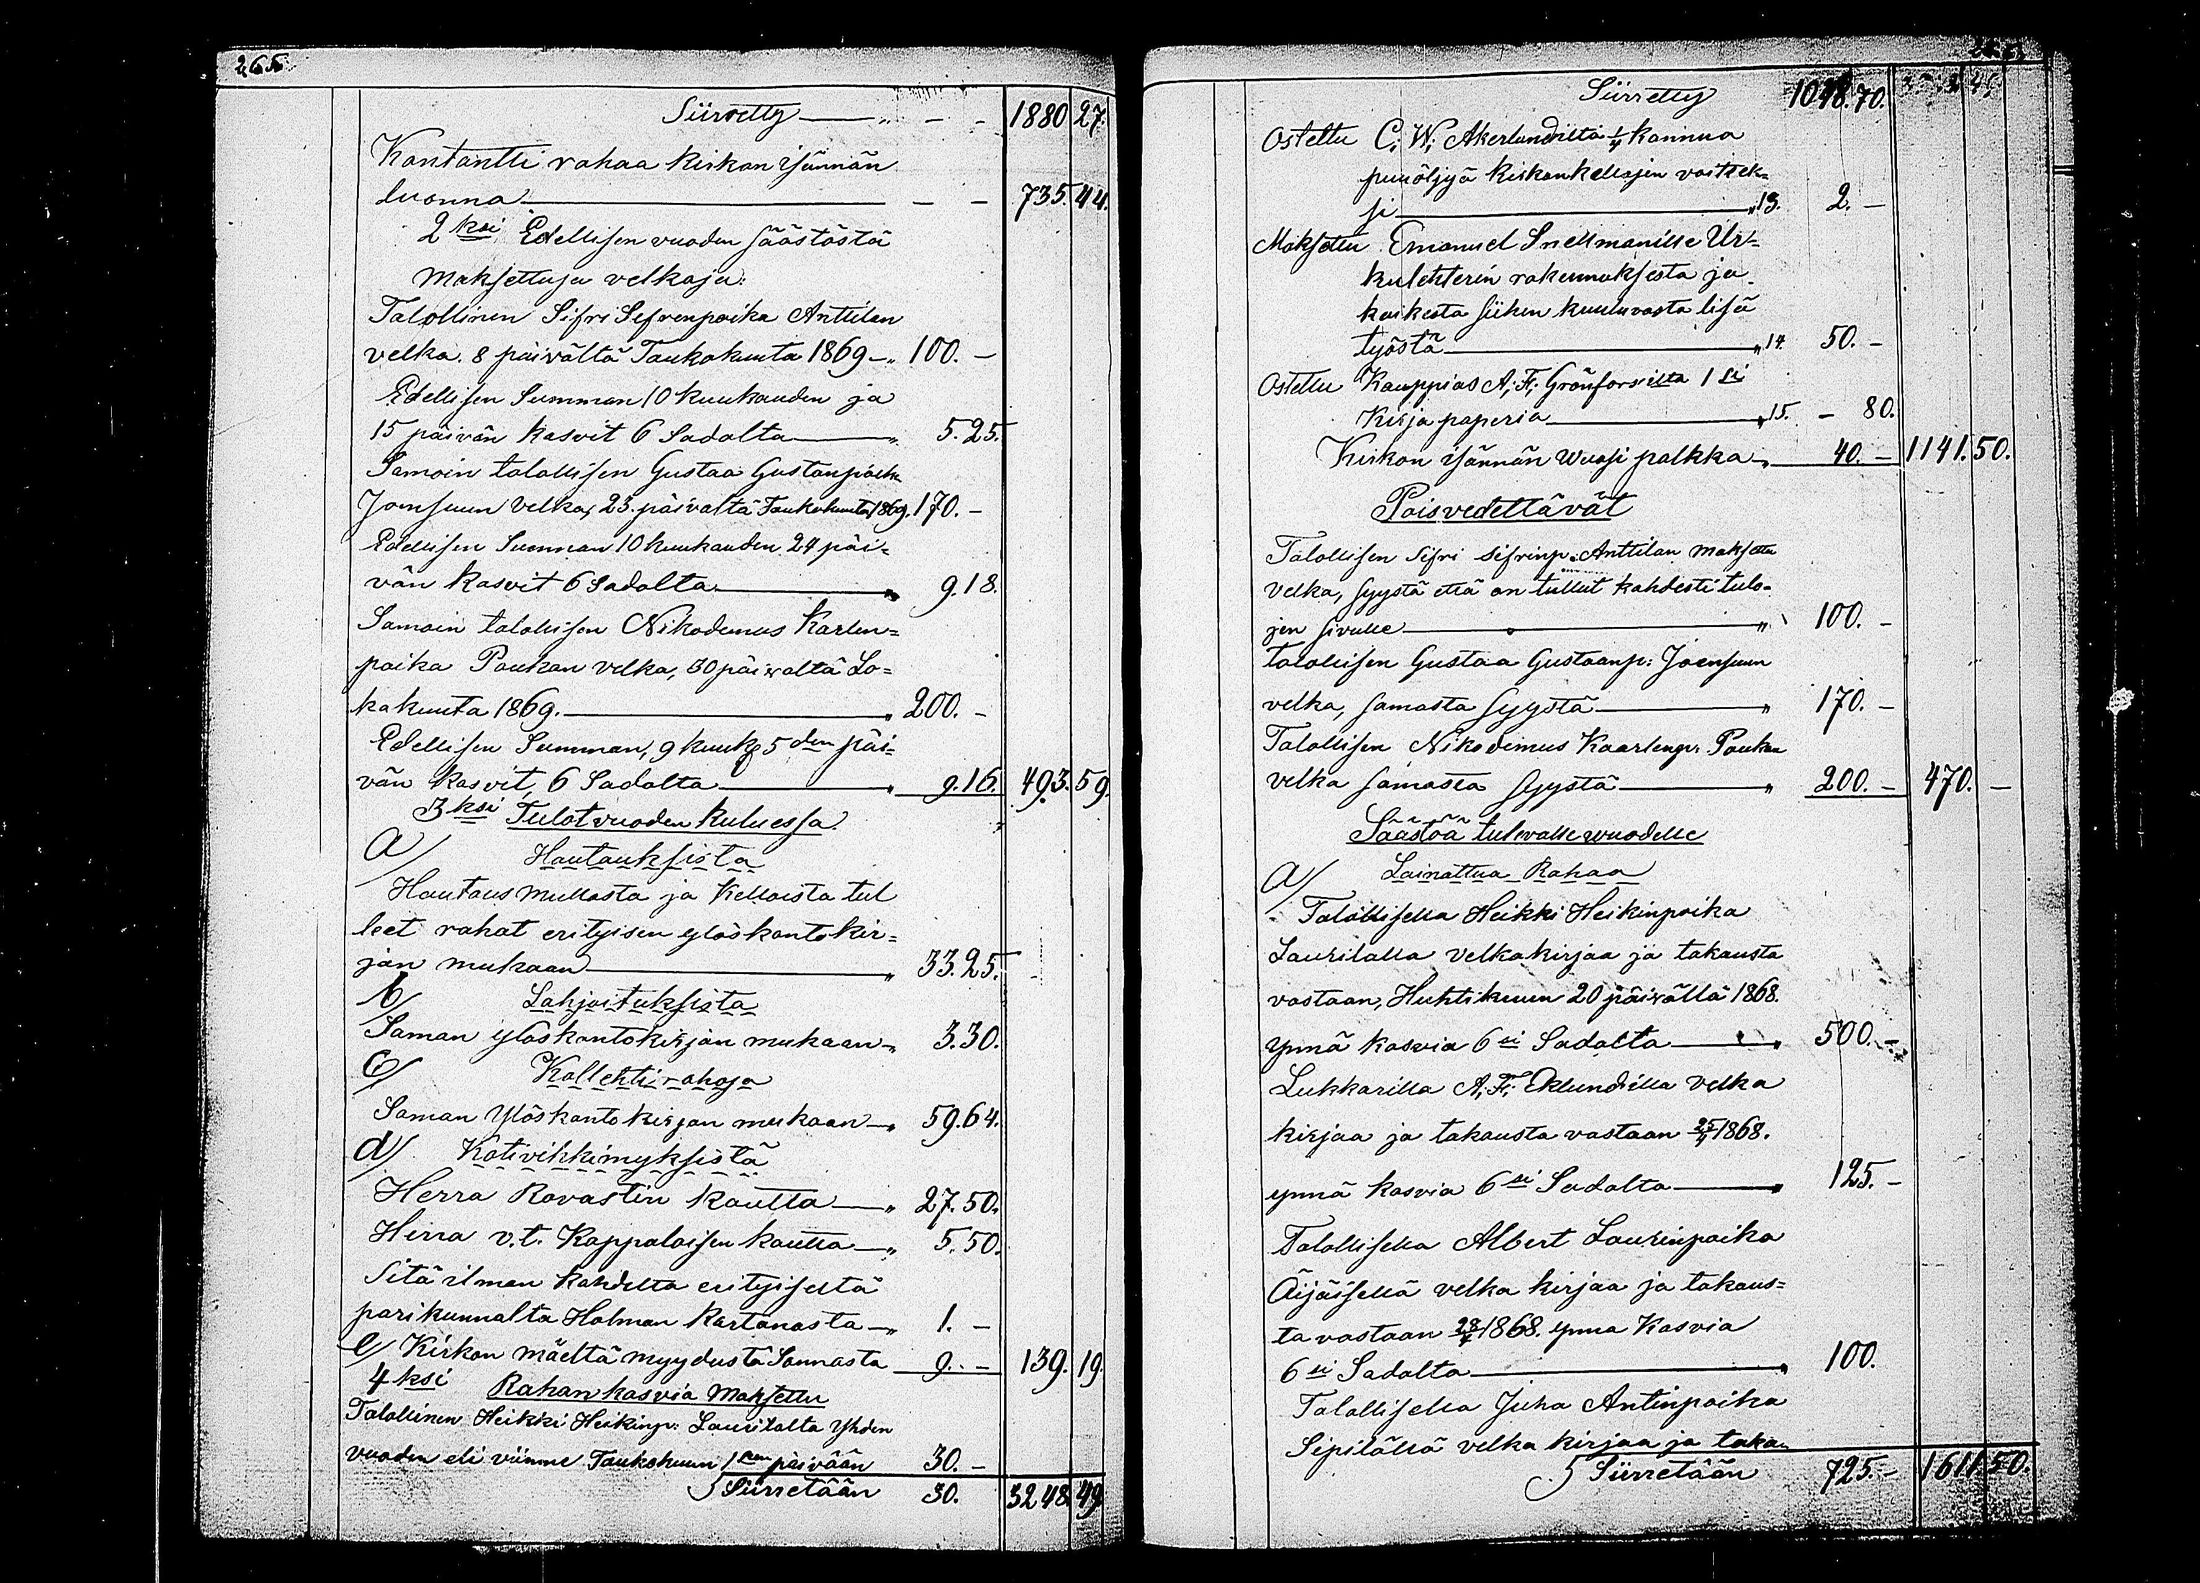 265
Siirretty — „ — — 1880 27.
Kontantti rahaa Kirkon isännän
luona — — — 735. 44.
2 ksi Edellisen vuoden säästöstä
Maksettuja velkoja:
Talollinen Sifri Sefrenpoika Anttilan
velka 8 päivältä Toukokuuta 1869 — „ 100. —
Edellisen Summan 10 kuukauden ja
15 päivän kasvit 6 Sadalta — „ 5. 25.
Samoin talollisen Gustaa Gustanpoik.
Joensuun velka, 23. päivältä Toukokuuta 1869. 170. —
Edellisen Summan 10 kuukauden 24 päi=
vän kasvit 6 Sadalta — „ 9. 18.
Samoin talollisen Nikodemus Karlen=
poika Poukan velka, 30 päivältä Lo=
kakuuta 1869. — „ 200. —
Edellisen Summan, 9 kuuk 5 den päi=
vän kasvit, 6 Sadalta — „ 9. 16. 493. 59.
3 ksi Tulot vuoden kuluessa.
a/ Hautauksista
Hautaus mullasta ja Kelloista tul
leet rahat erityisen ylöskantokir=
jan mukaan — „ 33. 25.
b/ Lahjoituksista
Saman ylöskantokirjan mukaan — „ 3. 30.
c/ Kollehti rahoja
Saman Ylöskantokirjan mukaan — „ 59. 64.
d/ Kotivihkimyksistä
Herra Rovastin kautta — „ 27. 50.
Herra v.t. Kappalaisen kautta — „ 5. 50.
Sitä ilman kahdelta erityiseltä
parikunnalta Holman kartanosta — „ 1. —
e/ Kirkon mäeltä myydystä Sonnasta — 9. — 139. 19.
4 ksi Rahan kasvia Maksettu
Talollinen Heikki Heikinp: Laurilalta Yhden
vuoden eli viimme Toukokuun 1 sen päivään 30. —
Siirretään 30. 3248. 49.
Siirretty 1048. 70.
Ostettu C; W; Akerlundilta 1/4 Kannua
puuöljyä Kirkonkellojen voiteek=
si — „ 13. 2. —
Maksettu Emanuel Snellmanille Ur=
kulehterin rakennuksesta ja
kaikesta siihen kuuluvasta lisä
työstä — „ 14. 50. —
Ostettu Kauppias A; F; Grönforsilta 1 si
Kirja paperia — „ 15. — 80.
Kirkon isännän Wuosi palkka — „ 40. — 1141. 50.
Poisvedettävät
Talollisen Sifri Sifrinp: Anttilan maksettu
velka, syystä että on tullut kahdesti tulo=
jen sivulle — „ 100. —
talollisen Gustaa Gustaanp: Joensuun
velka, samasta syystä — „ 170. —
Talollisen Nikodemus Kaarlenp: Poukan
velka samasta syystä — „ 200. — 470. —
Säästöä tulevalle wuodelle
a/ Lainattua Rahaa
Talollisella Heikki Heikinpoika
Laurilalla velkakirjaa ja takausta
vastaan, Huhtikuun 20 päivällä 1868.
ynnä kasvia 6 si Sadalta — „ 500. —
Lukkarilla A; F; Eklundilla velka
kirjaa ja takausta vastaan 25/4 1868.
ynnä kasvia 6 si Sadalta — „ 125. —
Talollisella Albert Laurinpoika
Äijäisellä velka kirjaa ja takaus=
ta vastaan 1868. ynnä Kasvia
6 si Sadalta — „ 100.
Talollisella Juha Antinpoika
Sipilällä velka kirjaa ja taka=
Siirretään 725. — 1611 50.